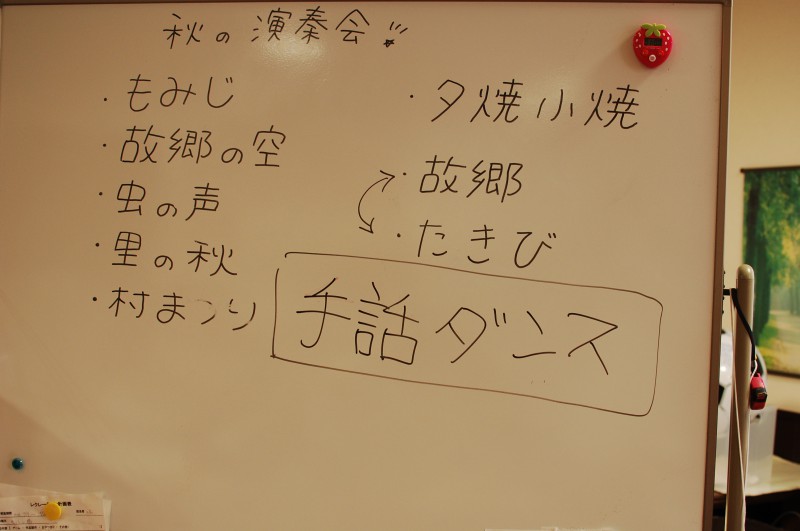 秋の演奏会
・もみじ
・故郷の空
・虫の声
・里の秋
・村まつり
・夕焼小焼
・故郷
・たきび
手話ダンス